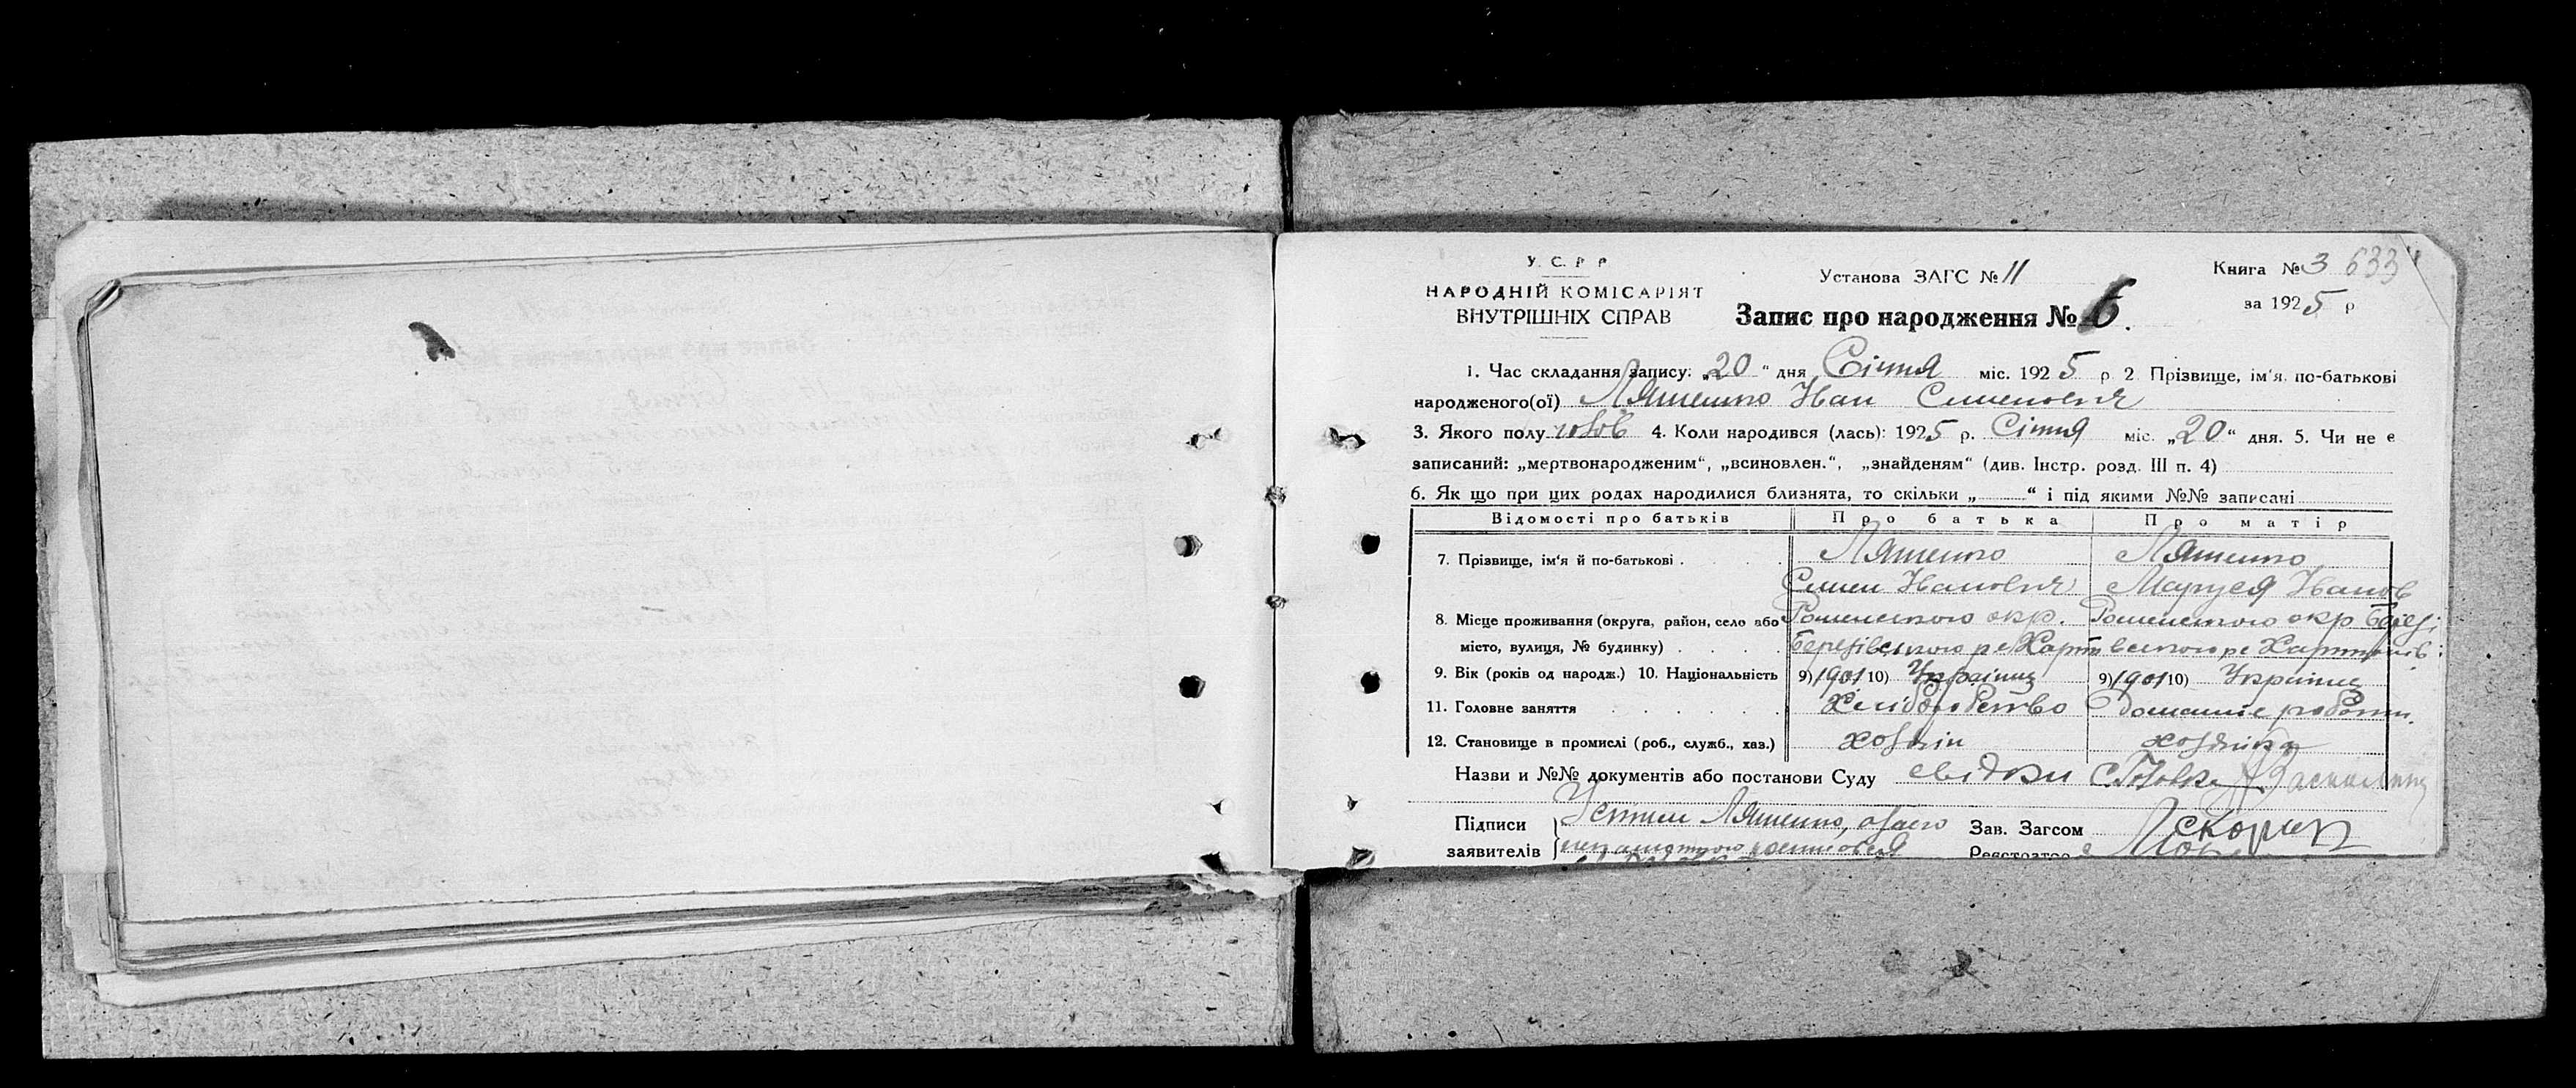 У. С. Р. Р.
НАРОДНІЙ КОМІСАРІЯТ
ВНУТРІШНІХ СПРАВ
Установа ЗАГС № 11
Запис про народження № 6.
Книга № 3 633
за 1925 р
1. Час складання запису: „20“ дня Січня міс. 1925 р 2 Прізвище, ім'я, по-батькові
народженого(ої) Ляшенко Іван Сименович
3. Якого полу чолов 4. Коли народився (лась): 1925 р. Січня міс. „20“ дня. 5. Чи не є
записаний: „мертвонародженим“, „всиновлен.“, „знайденям“ (див. Інстр. розд. III п. 4)
6. Як що при цих родах народилися близнята, то скільки „ “ і під якими №№ записані
Відомості про батьків Про батька Про матір
7. Прізвище, ім'я й по-батькові . Ляшенко Ляшенко
Симен Іванович Маруся Іванов
8. Місце проживання (округа, район, село або Роменського окр. Роменського окр Бере
місто, вулиця, № будинку) . Березівського
9. Вік (років од народж.) 10. Національність 9) 1901 10) Українц 9) 1901 10) Українц
11. Головне заняття Хліборобство Домашне робот.
12. Становище в промислі (роб., служб., хаз.) хозяін хозяіка
Назви и №№ документів або постанови Суду свідки
Підписи Ляшенко, Зав. Загсом
заявителів Реєстратор